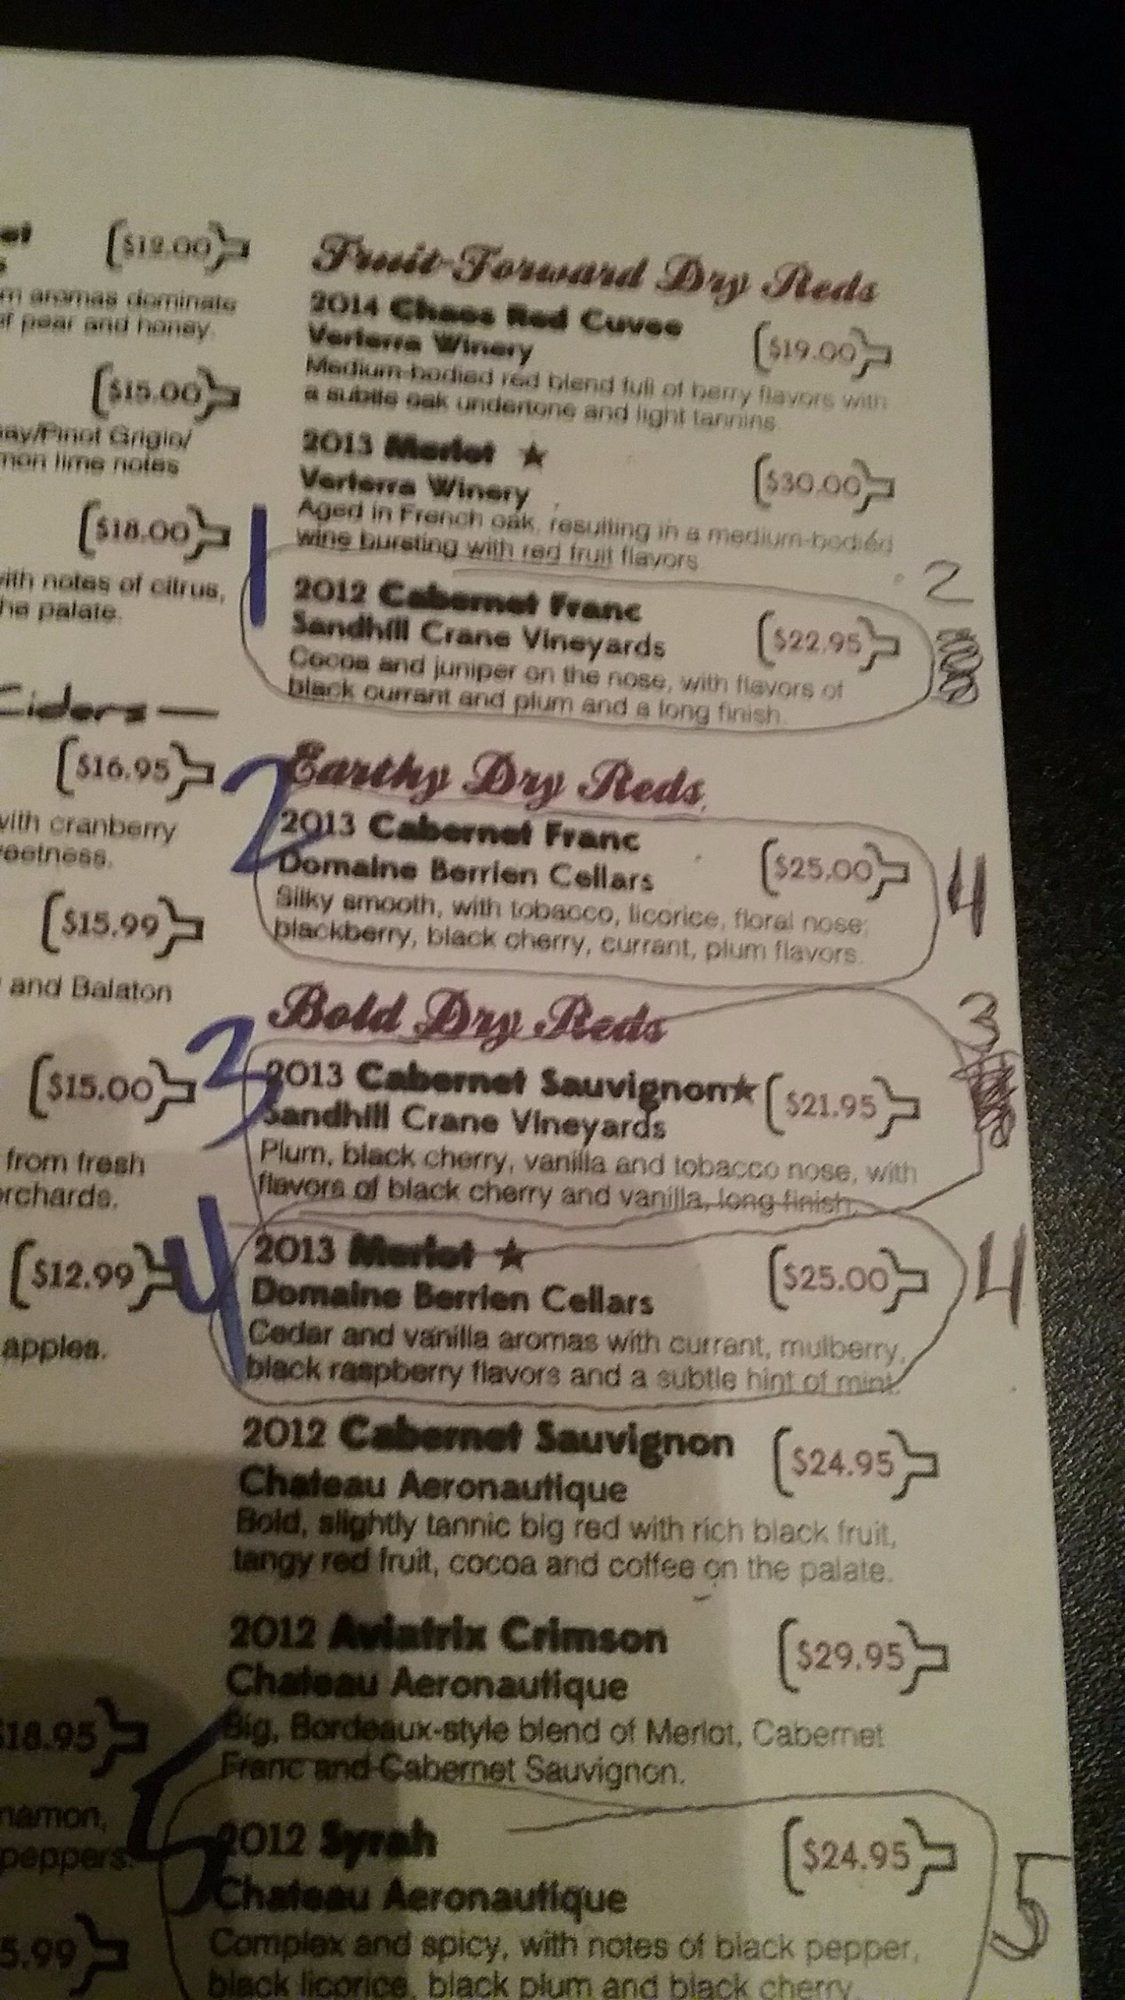 [$12.00]
m aromas dominate
of pear and honey.
[$15.00]
ay/Pinot Grigio/
mon lime notes
[$18.00]
with notes of citrus,
he palate.
Ciders
[$16.95]
with cranberry
eetness.
[$15.99]
and Balaton
[$15.00]
from fresh
orchards.
[$12.99]
apples.
$18.95
namon,
peppers.
5.99
Fruit-Forward Dry Reds
2014 Chaos Red Cuvee
Verterra Winery [$19.00]
Medium-bodied red blend full of berry flavors with
a subtle oak undertone and light tannins.
2013 Merlot ★
Verterra Winery [$30.00]
Aged in French oak, resulting in a medium-bodied
wine bursting with red fruit flavors
1 2
2012 Cabernet Franc
Sandhill Crane Vineyards [$22.95]
Cocoa and juniper on the nose, with flavors of
black currant and plum and a long finish.
Earthy Dry Reds
2 2013 Cabernet Franc
Domaine Berrien Cellars [$25.00] 4
Silky smooth, with tobacco, licorice, floral nose;
blackberry, black cherry, currant, plum flavors.
Bold Dry Reds 3
3 2013 Cabernet Sauvignon★ [$21.95]
Sandhill Crane Vineyards
Plum, black cherry, vanilla and tobacco nose, with
flavors of black cherry and vanilla, long finish.
4 2013 Merlot ★ [$25.00] 4
Domaine Berrien Cellars
Cedar and vanilla aromas with currant, mulberry,
black raspberry flavors and a subtle hint of mint.
2012 Cabernet Sauvignon [$24.95]
Chateau Aeronautique
Bold, slightly tannic big red with rich black fruit,
tangy red fruit, cocoa and coffee on the palate.
2012 Aviatrix Crimson [$29.95]
Chateau Aeronautique
Big, Bordeaux-style blend of Merlot, Cabernet
Franc and Cabernet Sauvignon.
5 2012 Syrah [$24.95] 5
Chateau Aeronautique
Complex and spicy, with notes of black pepper,
black licorice, black plum and black cherry.